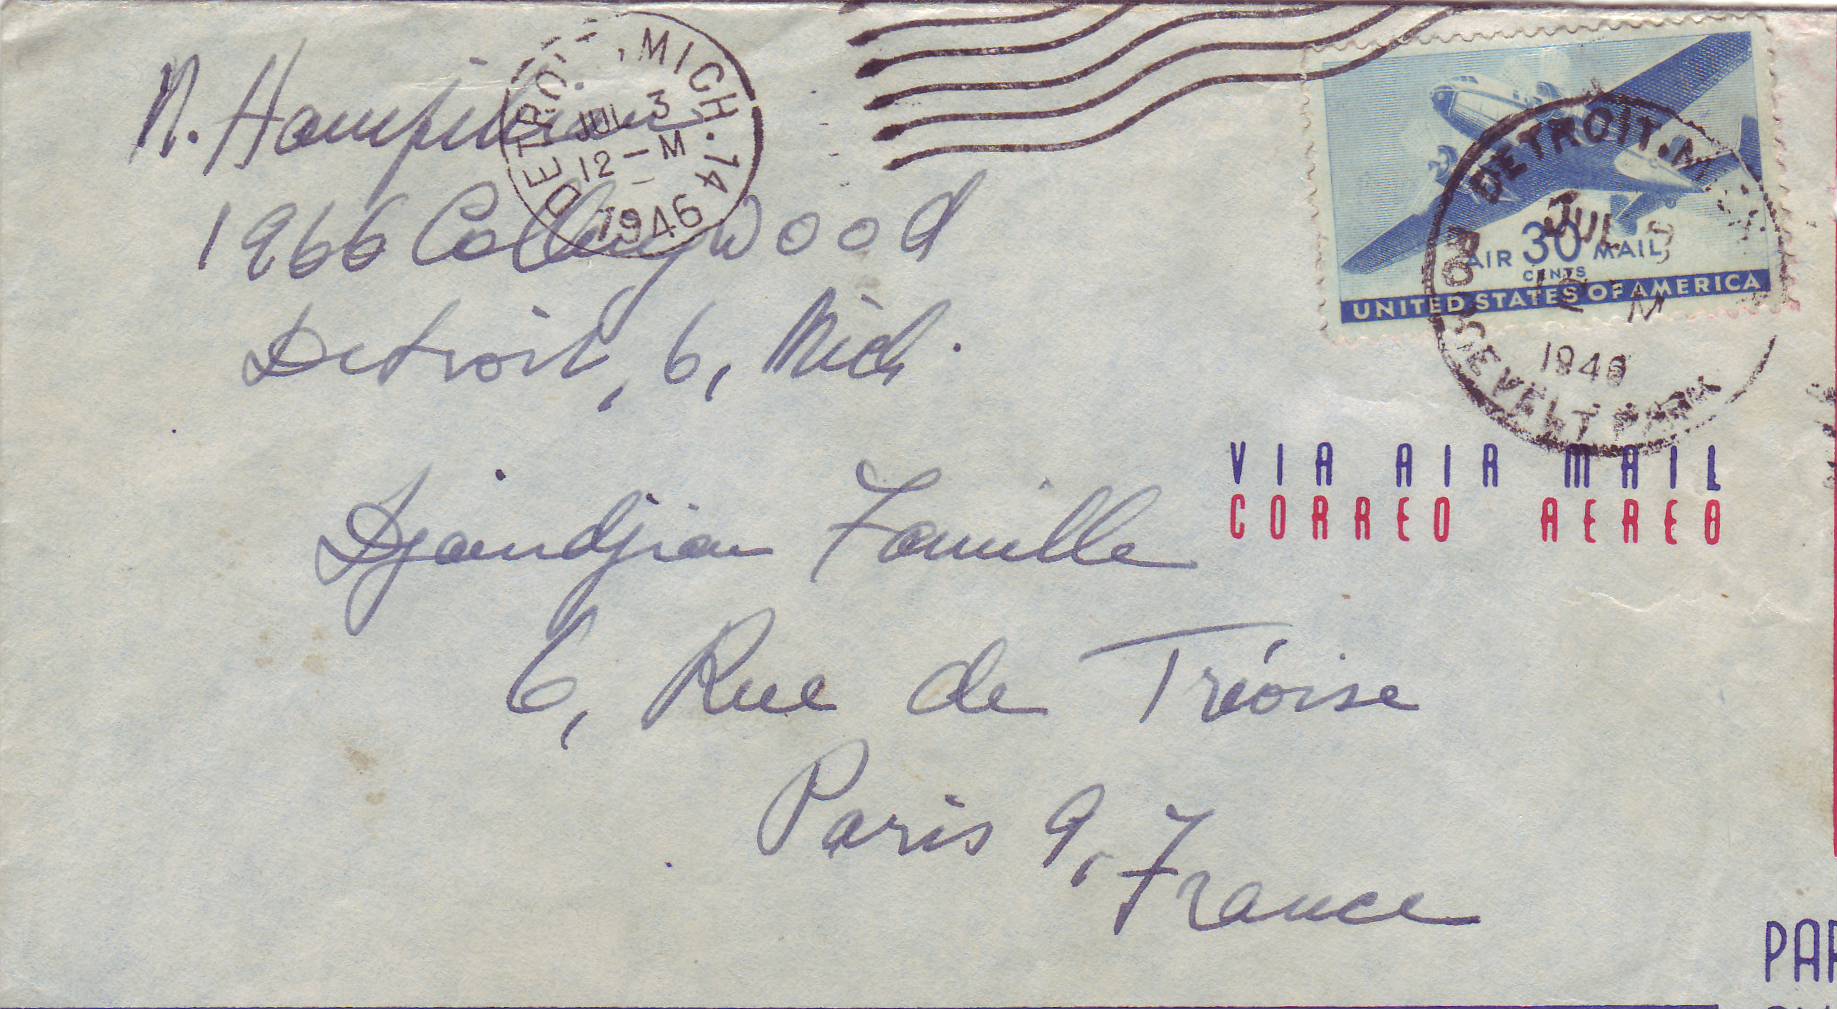 N. Hampikian
1966 Collingwood
Detroit, 6, Mich.
DETROIT, MICH. 14
JUL 3
12 - M
1946
AIR 30 MAIL
CENTS
UNITED STATES OF AMERICA
DETROIT, MICH
JUL 3
12 M
1946
ROOSEVELT PARK
VIA AIR MAIL
CORREO AEREO
Djaindjian Famille
6, Rue de Tréoise
Paris 9, France
PAR